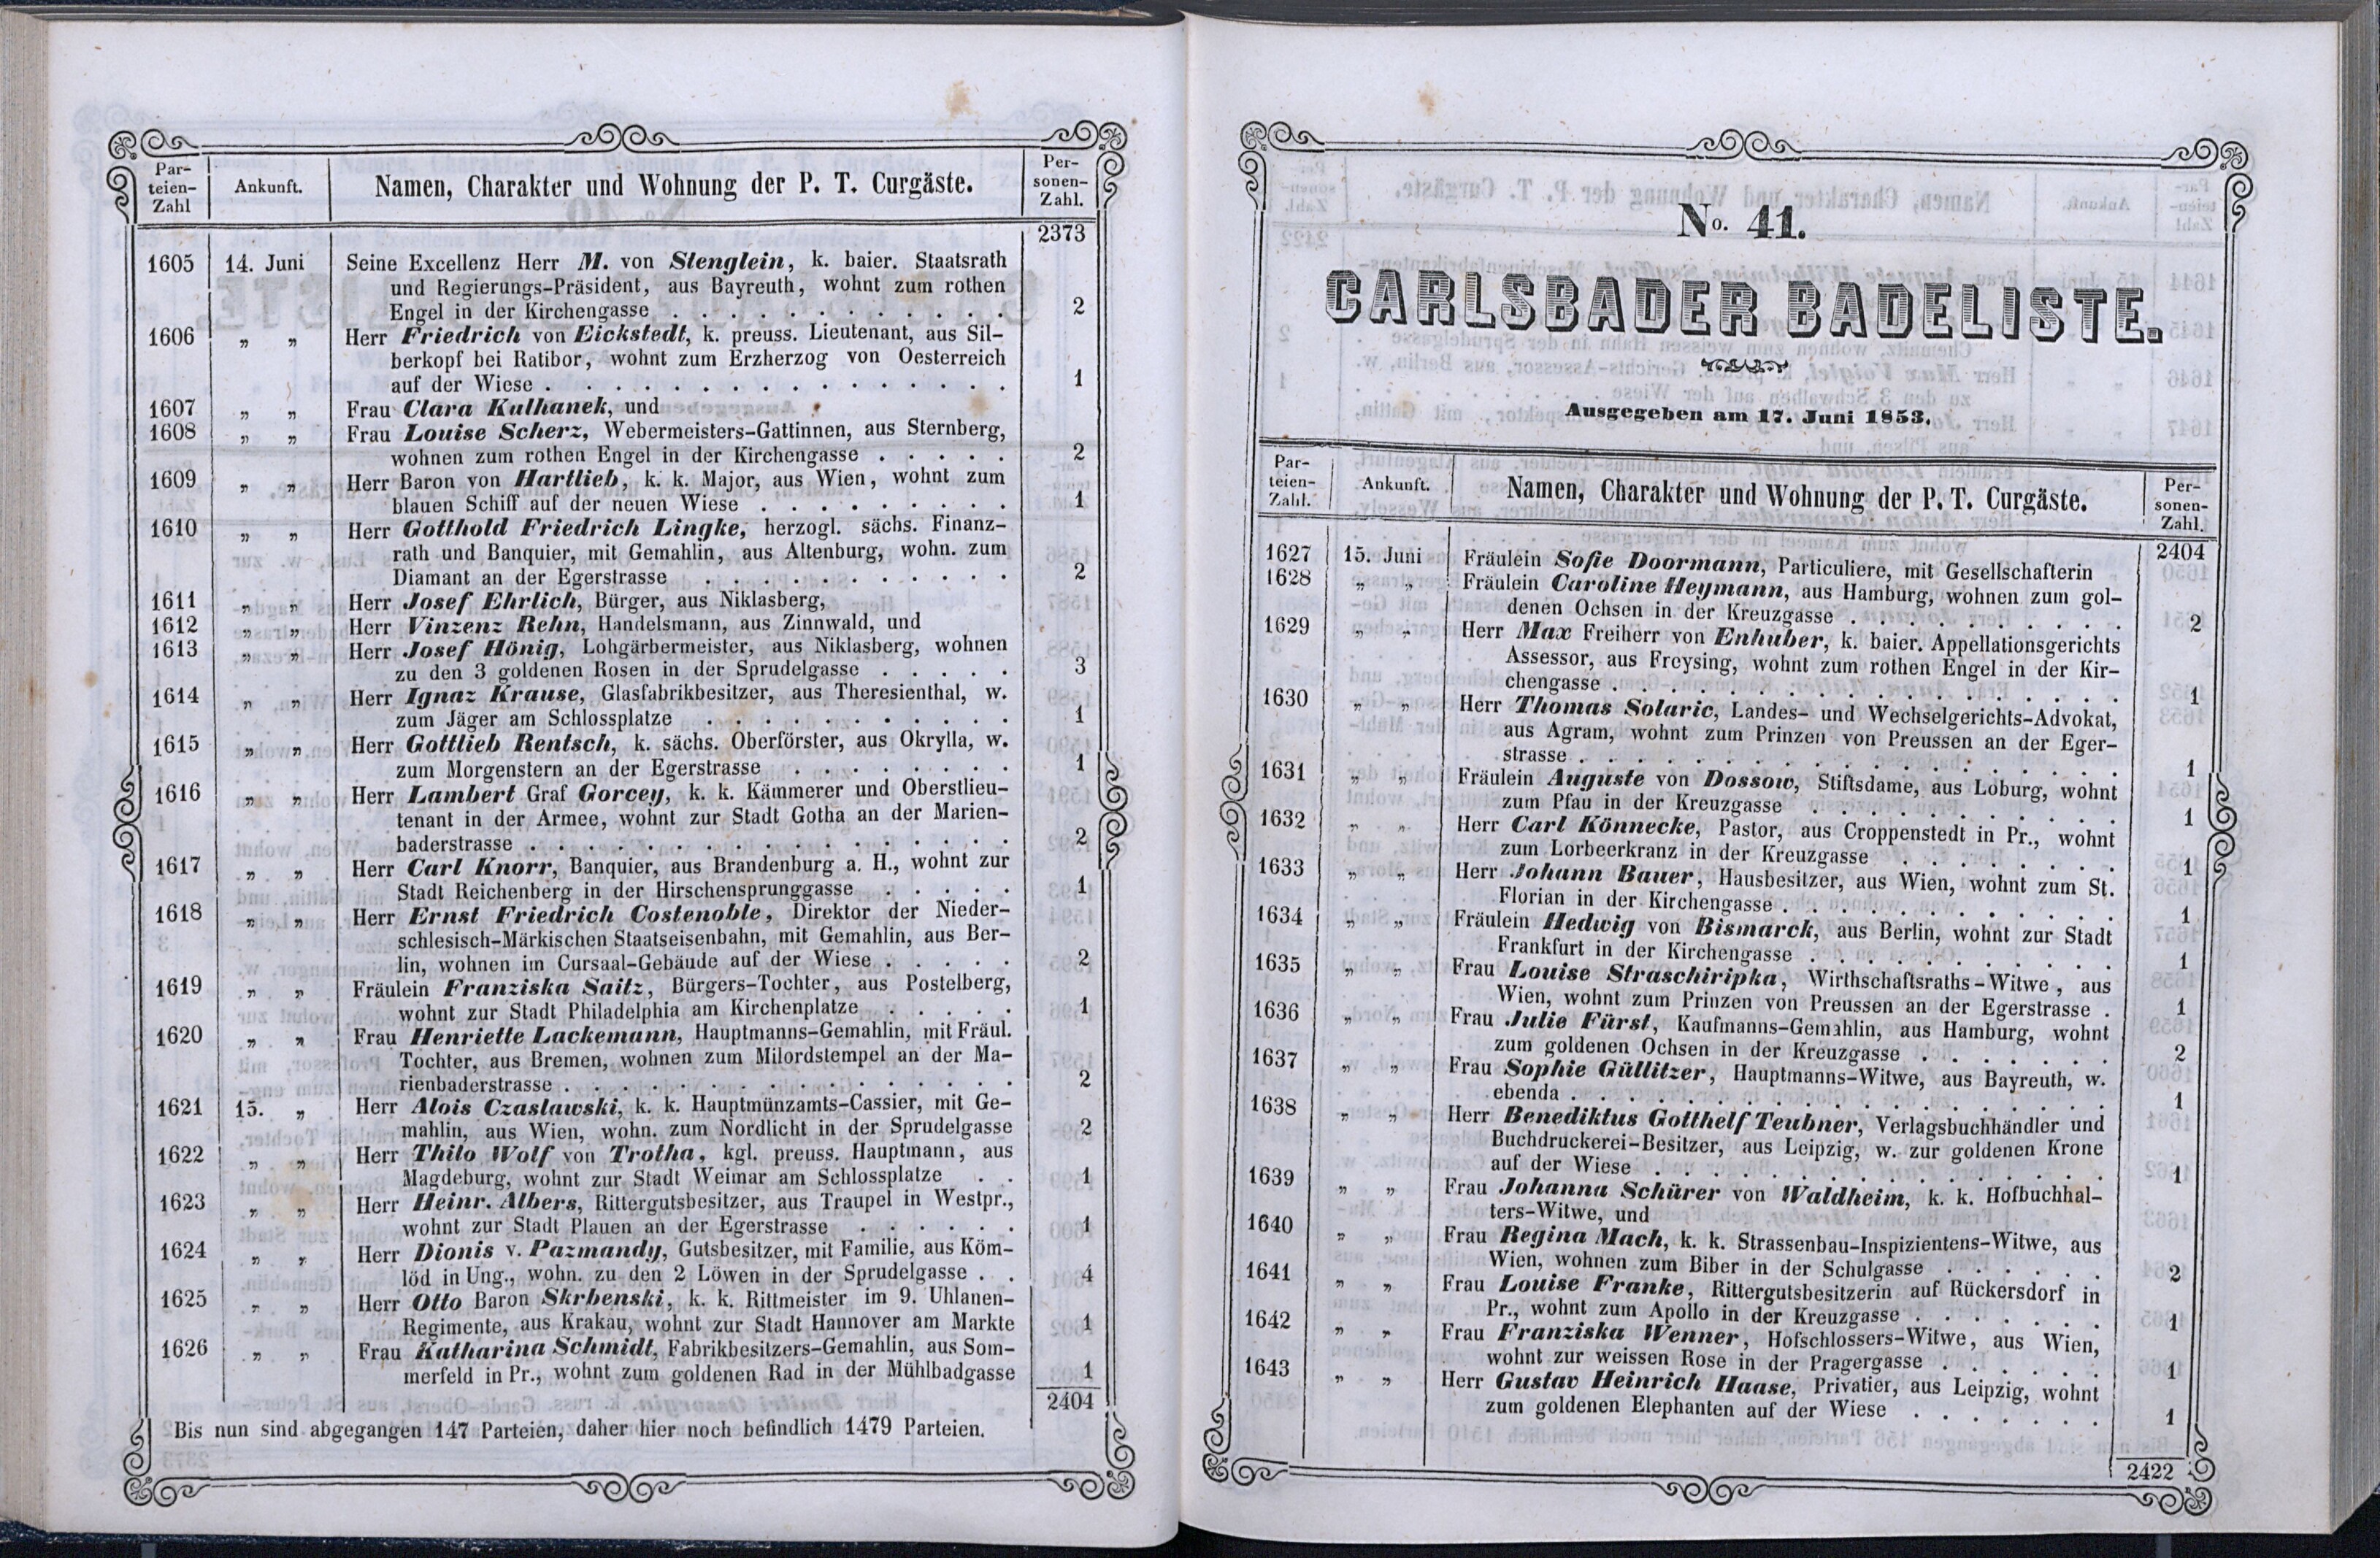 Par-
teien-
Zahl
Ankunft.
Namen, Charakter und Wohnung der P. T. Curgäste.
Per-
sonen-
Zahl.
2373
1605 14. Juni Seine Excellenz Herr M. von Stenglein, k. baier. Staatsrath
und Regierungs-Präsident, aus Bayreuth, wohnt zum rothen
Engel in der Kirchengasse . . . . . . . . . . . . 2
1606 „ „ Herr Friedrich von Eickstedt, k. preuss. Lieutenant, aus Sil-
berkopf bei Ratibor, wohnt zum Erzherzog von Oesterreich
auf der Wiese . . . . . . . . . . . . . . . 1
1607 „ „ Frau Clara Kulhanek, und
1608 „ „ Frau Louise Scherz, Webermeisters-Gattinnen, aus Sternberg,
wohnen zum rothen Engel in der Kirchengasse . . . . . 2
1609 „ „ Herr Baron von Hartlieb, k. k. Major, aus Wien, wohnt zum
blauen Schiff auf der neuen Wiese . . . . . . . . . 1
1610 „ „ Herr Gotthold Friedrich Lingke, herzogl. sächs. Finanz-
rath und Banquier, mit Gemahlin, aus Altenburg, wohn. zum
Diamant an der Egerstrasse . . . . . . . . . . . 2
1611 „ „ Herr Josef Ehrlich, Bürger, aus Niklasberg,
1612 „ „ Herr Vinzenz Rehn, Handelsmann, aus Zinnwald, und
1613 „ „ Herr Josef Hönig, Lohgärbermeister, aus Niklasberg, wohnen
zu den 3 goldenen Rosen in der Sprudelgasse . . . . . 3
1614 „ „ Herr Ignaz Krause, Glasfabrikbesitzer, aus Theresienthal, w.
zum Jäger am Schlossplatze . . . . . . . . . . . 1
1615 „ „ Herr Gottlieb Rentsch, k. sächs. Oberförster, aus Okrylla, w.
zum Morgenstern an der Egerstrasse . . . . . . . . 1
1616 „ „ Herr Lambert Graf Gorcey, k. k. Kämmerer und Oberstlieu-
tenant in der Armee, wohnt zur Stadt Gotha an der Marien-
baderstrasse . . . . . . . . . . . . . . . . . 2
1617 „ „ Herr Carl Knorr, Banquier, aus Brandenburg a. H., wohnt zur
Stadt Reichenberg in der Hirschensprunggasse . . . . . 1
1618 „ „ Herr Ernst Friedrich Costenoble, Direktor der Nieder-
schlesisch-Märkischen Staatseisenbahn, mit Gemahlin, aus Ber-
lin, wohnen im Cursaal-Gebäude auf der Wiese . . . . . 2
1619 „ „ Fräulein Franziska Saitz, Bürgers-Tochter, aus Postelberg,
wohnt zur Stadt Philadelphia am Kirchenplatze . . . . . 1
1620 „ „ Frau Henriette Lackemann, Hauptmanns-Gemahlin, mit Fräul.
Tochter, aus Bremen, wohnen zum Milordstempel an der Ma-
rienbaderstrasse . . . . . . . . . . . . . . . . 2
1621 15. „ Herr Alois Czaslawski, k. k. Hauptmünzamts-Cassier, mit Ge-
mahlin, aus Wien, wohn. zum Nordlicht in der Sprudelgasse 2
1622 „ „ Herr Thilo Wolf von Trotha, kgl. preuss. Hauptmann, aus
Magdeburg, wohnt zur Stadt Weimar am Schlossplatze . . 1
1623 „ „ Herr Heinr. Albers, Rittergutsbesitzer, aus Traupel in Westpr.,
wohnt zur Stadt Plauen an der Egerstrasse . . . . . . 1
1624 „ „ Herr Dionis v. Pazmandy, Gutsbesitzer, mit Familie, aus Köm-
löd in Ung., wohn. zu den 2 Löwen in der Sprudelgasse . . 4
1625 „ „ Herr Otto Baron Skrbenski, k. k. Rittmeister im 9. Uhlanen-
Regimente, aus Krakau, wohnt zur Stadt Hannover am Markte 1
1626 „ „ Frau Katharina Schmidt, Fabrikbesitzers-Gemahlin, aus Som-
merfeld in Pr., wohnt zum goldenen Rad in der Mühlbadgasse 1
2404
Bis nun sind abgegangen 147 Parteien, daher hier noch befindlich 1479 Parteien.
No. 41.
CARLSBADER BADELISTE.
Ausgegeben am 17. Juni 1853.
Par-
teien-
Zahl.
Ankunft.
Namen, Charakter und Wohnung der P. T. Curgäste.
Per-
sonen-
Zahl.
2404
1627 15. Juni Fräulein Sofie Doormann, Particuliere, mit Gesellschafterin
1628 „ „ Fräulein Caroline Heymann, aus Hamburg, wohnen zum gol-
denen Ochsen in der Kreuzgasse . . . . . . . . . . 2
1629 „ „ Herr Max Freiherr von Enhuber, k. baier. Appellationsgerichts
Assessor, aus Freysing, wohnt zum rothen Engel in der Kir-
chengasse . . . . . . . . . . . . . . . . . . 1
1630 „ „ Herr Thomas Solaric, Landes- und Wechselgerichts-Advokat,
aus Agram, wohnt zum Prinzen von Preussen an der Eger-
strasse . . . . . . . . . . . . . . . . . . . 1
1631 „ „ Fräulein Auguste von Dossow, Stiftsdame, aus Loburg, wohnt
zum Pfau in der Kreuzgasse . . . . . . . . . . . 1
1632 „ „ Herr Carl Könnecke, Pastor, aus Croppenstedt in Pr., wohnt
zum Lorbeerkranz in der Kreuzgasse . . . . . . . . 1
1633 „ „ Herr Johann Bauer, Hausbesitzer, aus Wien, wohnt zum St.
Florian in der Kirchengasse . . . . . . . . . . . . 1
1634 „ „ Fräulein Hedwig von Bismarck, aus Berlin, wohnt zur Stadt
Frankfurt in der Kirchengasse . . . . . . . . . . . 1
1635 „ „ Frau Louise Straschiripka, Wirthschaftsraths-Witwe, aus
Wien, wohnt zum Prinzen von Preussen an der Egerstrasse . 1
1636 „ „ Frau Julie Fürst, Kaufmanns-Gemahlin, aus Hamburg, wohnt
zum goldenen Ochsen in der Kreuzgasse . . . . . . . 2
1637 „ „ Frau Sophie Güllitzer, Hauptmanns-Witwe, aus Bayreuth, w.
ebenda . . . . . . . . . . . . . . . . . . . 1
1638 „ „ Herr Benediktus Gotthelf Teubner, Verlagsbuchhändler und
Buchdruckerei-Besitzer, aus Leipzig, w. zur goldenen Krone
auf der Wiese . . . . . . . . . . . . . . . . 1
1639 „ „ Frau Johanna Schürer von Waldheim, k. k. Hofbuchhal-
ters-Witwe, und
1640 „ „ Frau Regina Mach, k. k. Strassenbau-Inspizientens-Witwe, aus
Wien, wohnen zum Biber in der Schulgasse . . . . . . 2
1641 „ „ Frau Louise Franke, Rittergutsbesitzerin auf Rückersdorf in
Pr., wohnt zum Apollo in der Kreuzgasse . . . . . . . 1
1642 „ „ Frau Franziska Wenner, Hofschlossers-Witwe, aus Wien,
wohnt zur weissen Rose in der Pragergasse . . . . . . 1
1643 „ „ Herr Gustav Heinrich Haase, Privatier, aus Leipzig, wohnt
zum goldenen Elephanten auf der Wiese . . . . . . . 1
2422